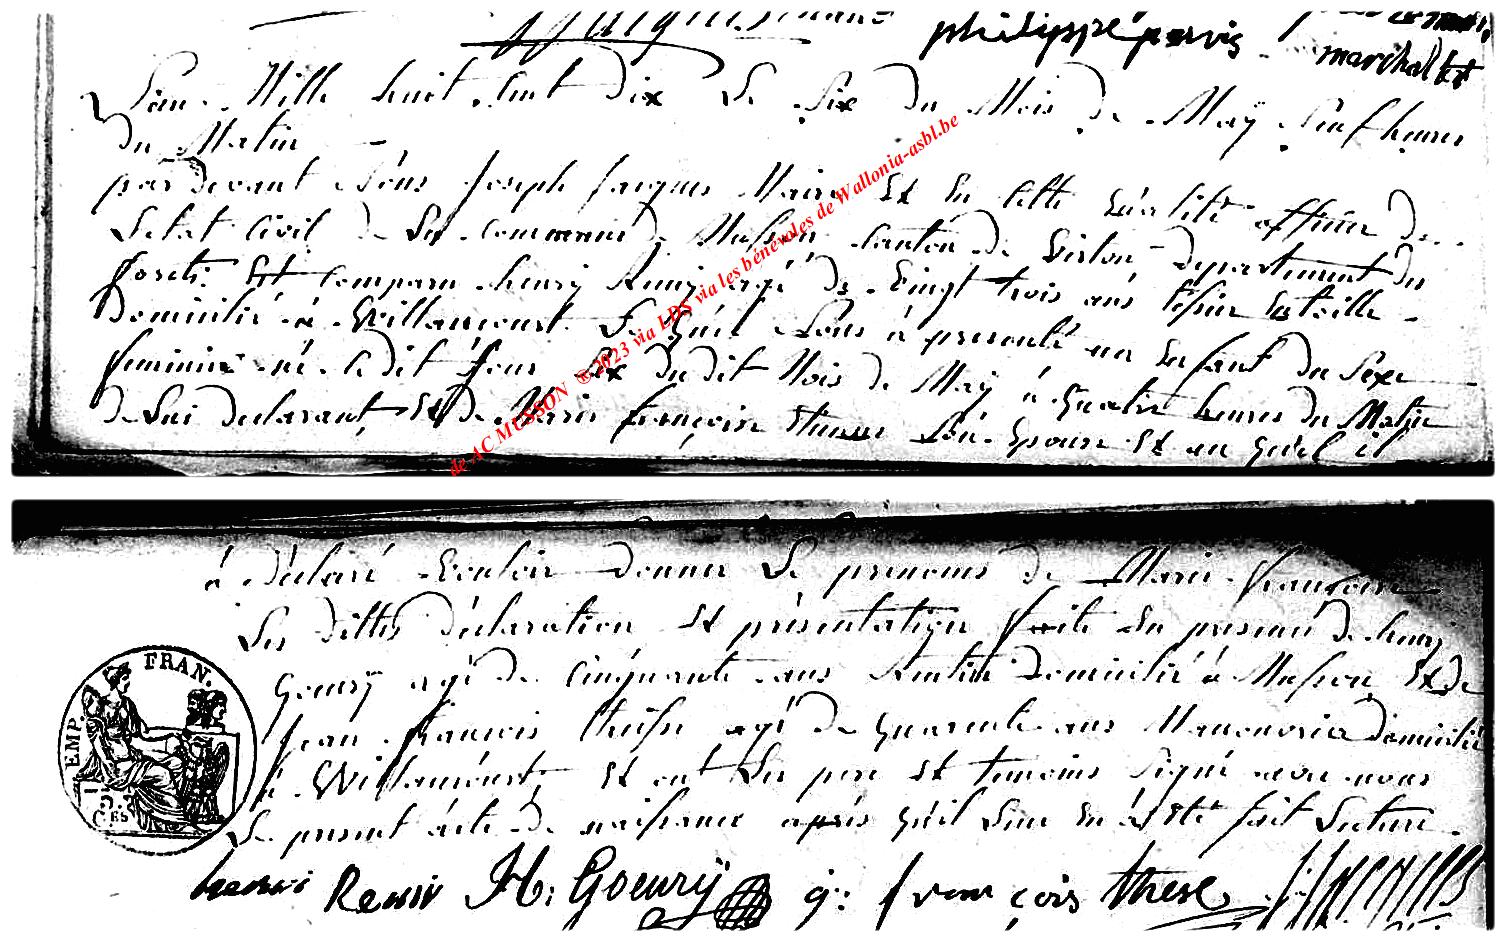 philippe pervis
marchal
L'an Mille huit Cent dix Le Six Du Mois De Maÿ Neuf heures
Du Matin
par Devant Nous Joseph Jacques Maire Et En Cette Qualité officier De
Letat Civil De La Commune De Musson Canton De Virton Departement Du
forets Est Comparu henry Remy agé De Vingt trois ans
Domicilié à Willancourt Le Quel Nous à presenté un Enfant Du Sexe
feminin né Le dit Jour Six Du dit Mois De Maÿ à Quatre heures Du Matin
De Lui declarant Et De Marie françoise Son Epouse Et au Quel il
de AC MUSSON @2023 via LDS via les bénévoles de Wallonia-asbl.be
à Déclaré Vouloir Donner Le prenoms De Marie françoise
Les dittes déclaration Et présentation faite En présence De henry
Goeurÿ agé De Cinquante ans Rentier Domicilié à Musson Et De
Jean François agé De Quarente ans Manouvrier Domicilié
à Willancourt Et ont Les pere Et temoins Signé avec nous
Le present acte De naissance après Quil Leur En à Eté fait Lecture
EMP. FRAN.
henri Remi H: Goeurÿ j: françois these